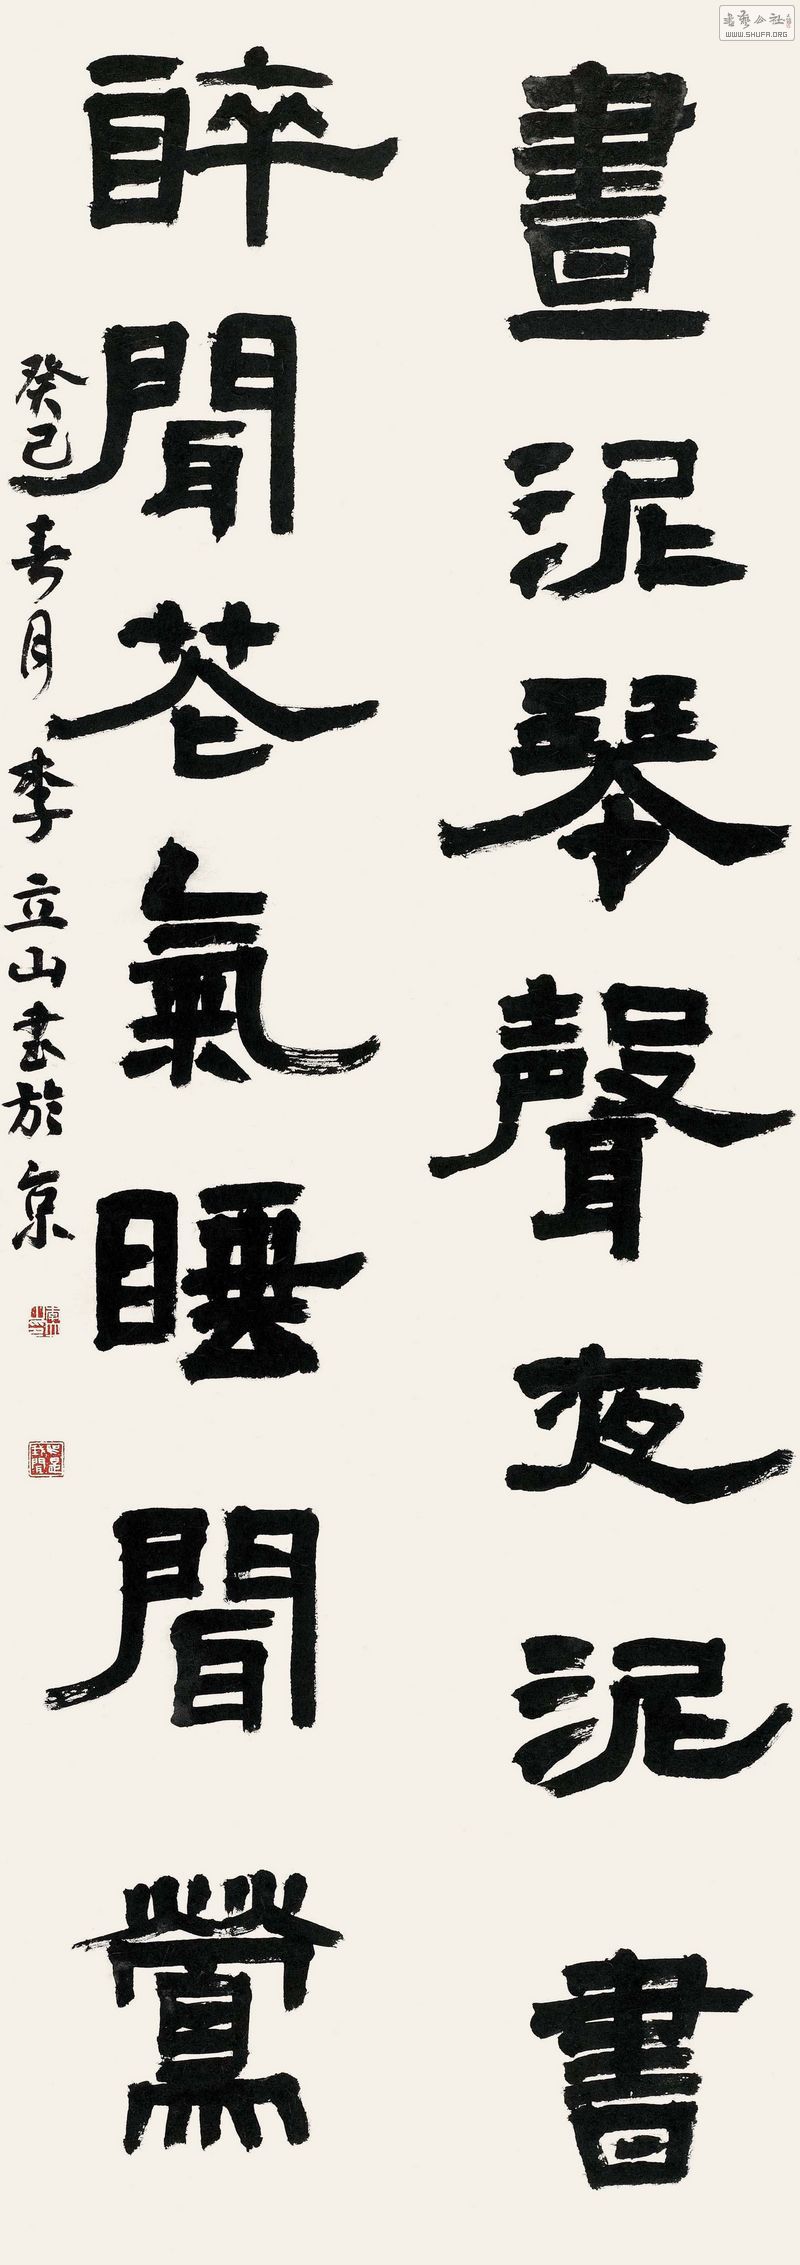 晝泥琴聲夜泥書
醉聞花氣睡聞鶯
癸巳春月李立山书於京
书艺公社
WWW.SHUFA.ORG